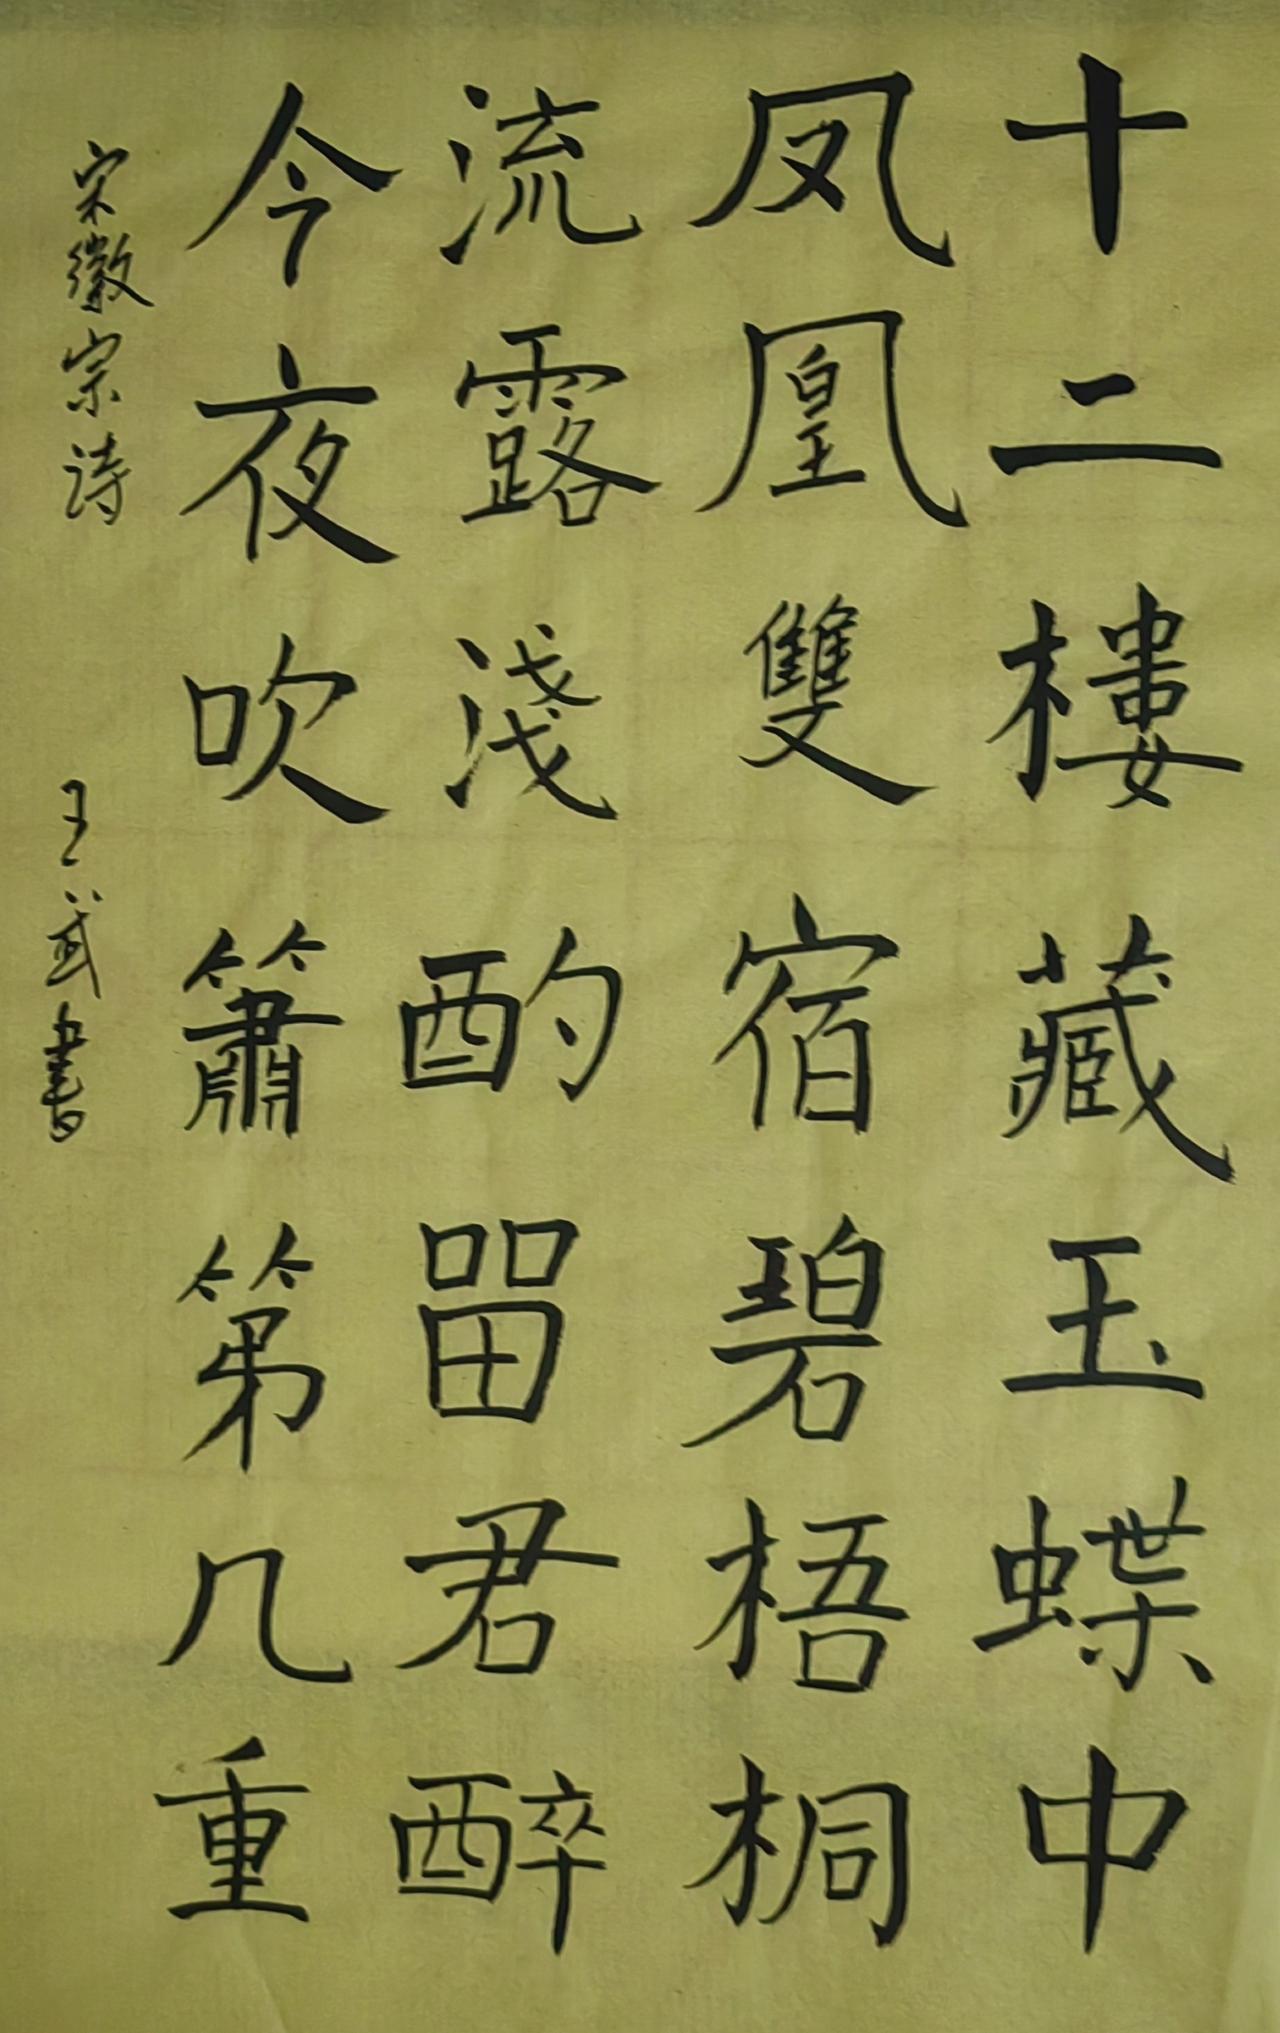 十二樓藏玉蝶中
凤凰雙宿碧梧桐
流露淺酌留君醉
今夜吹簫第几重
宋徽宗诗 王武書